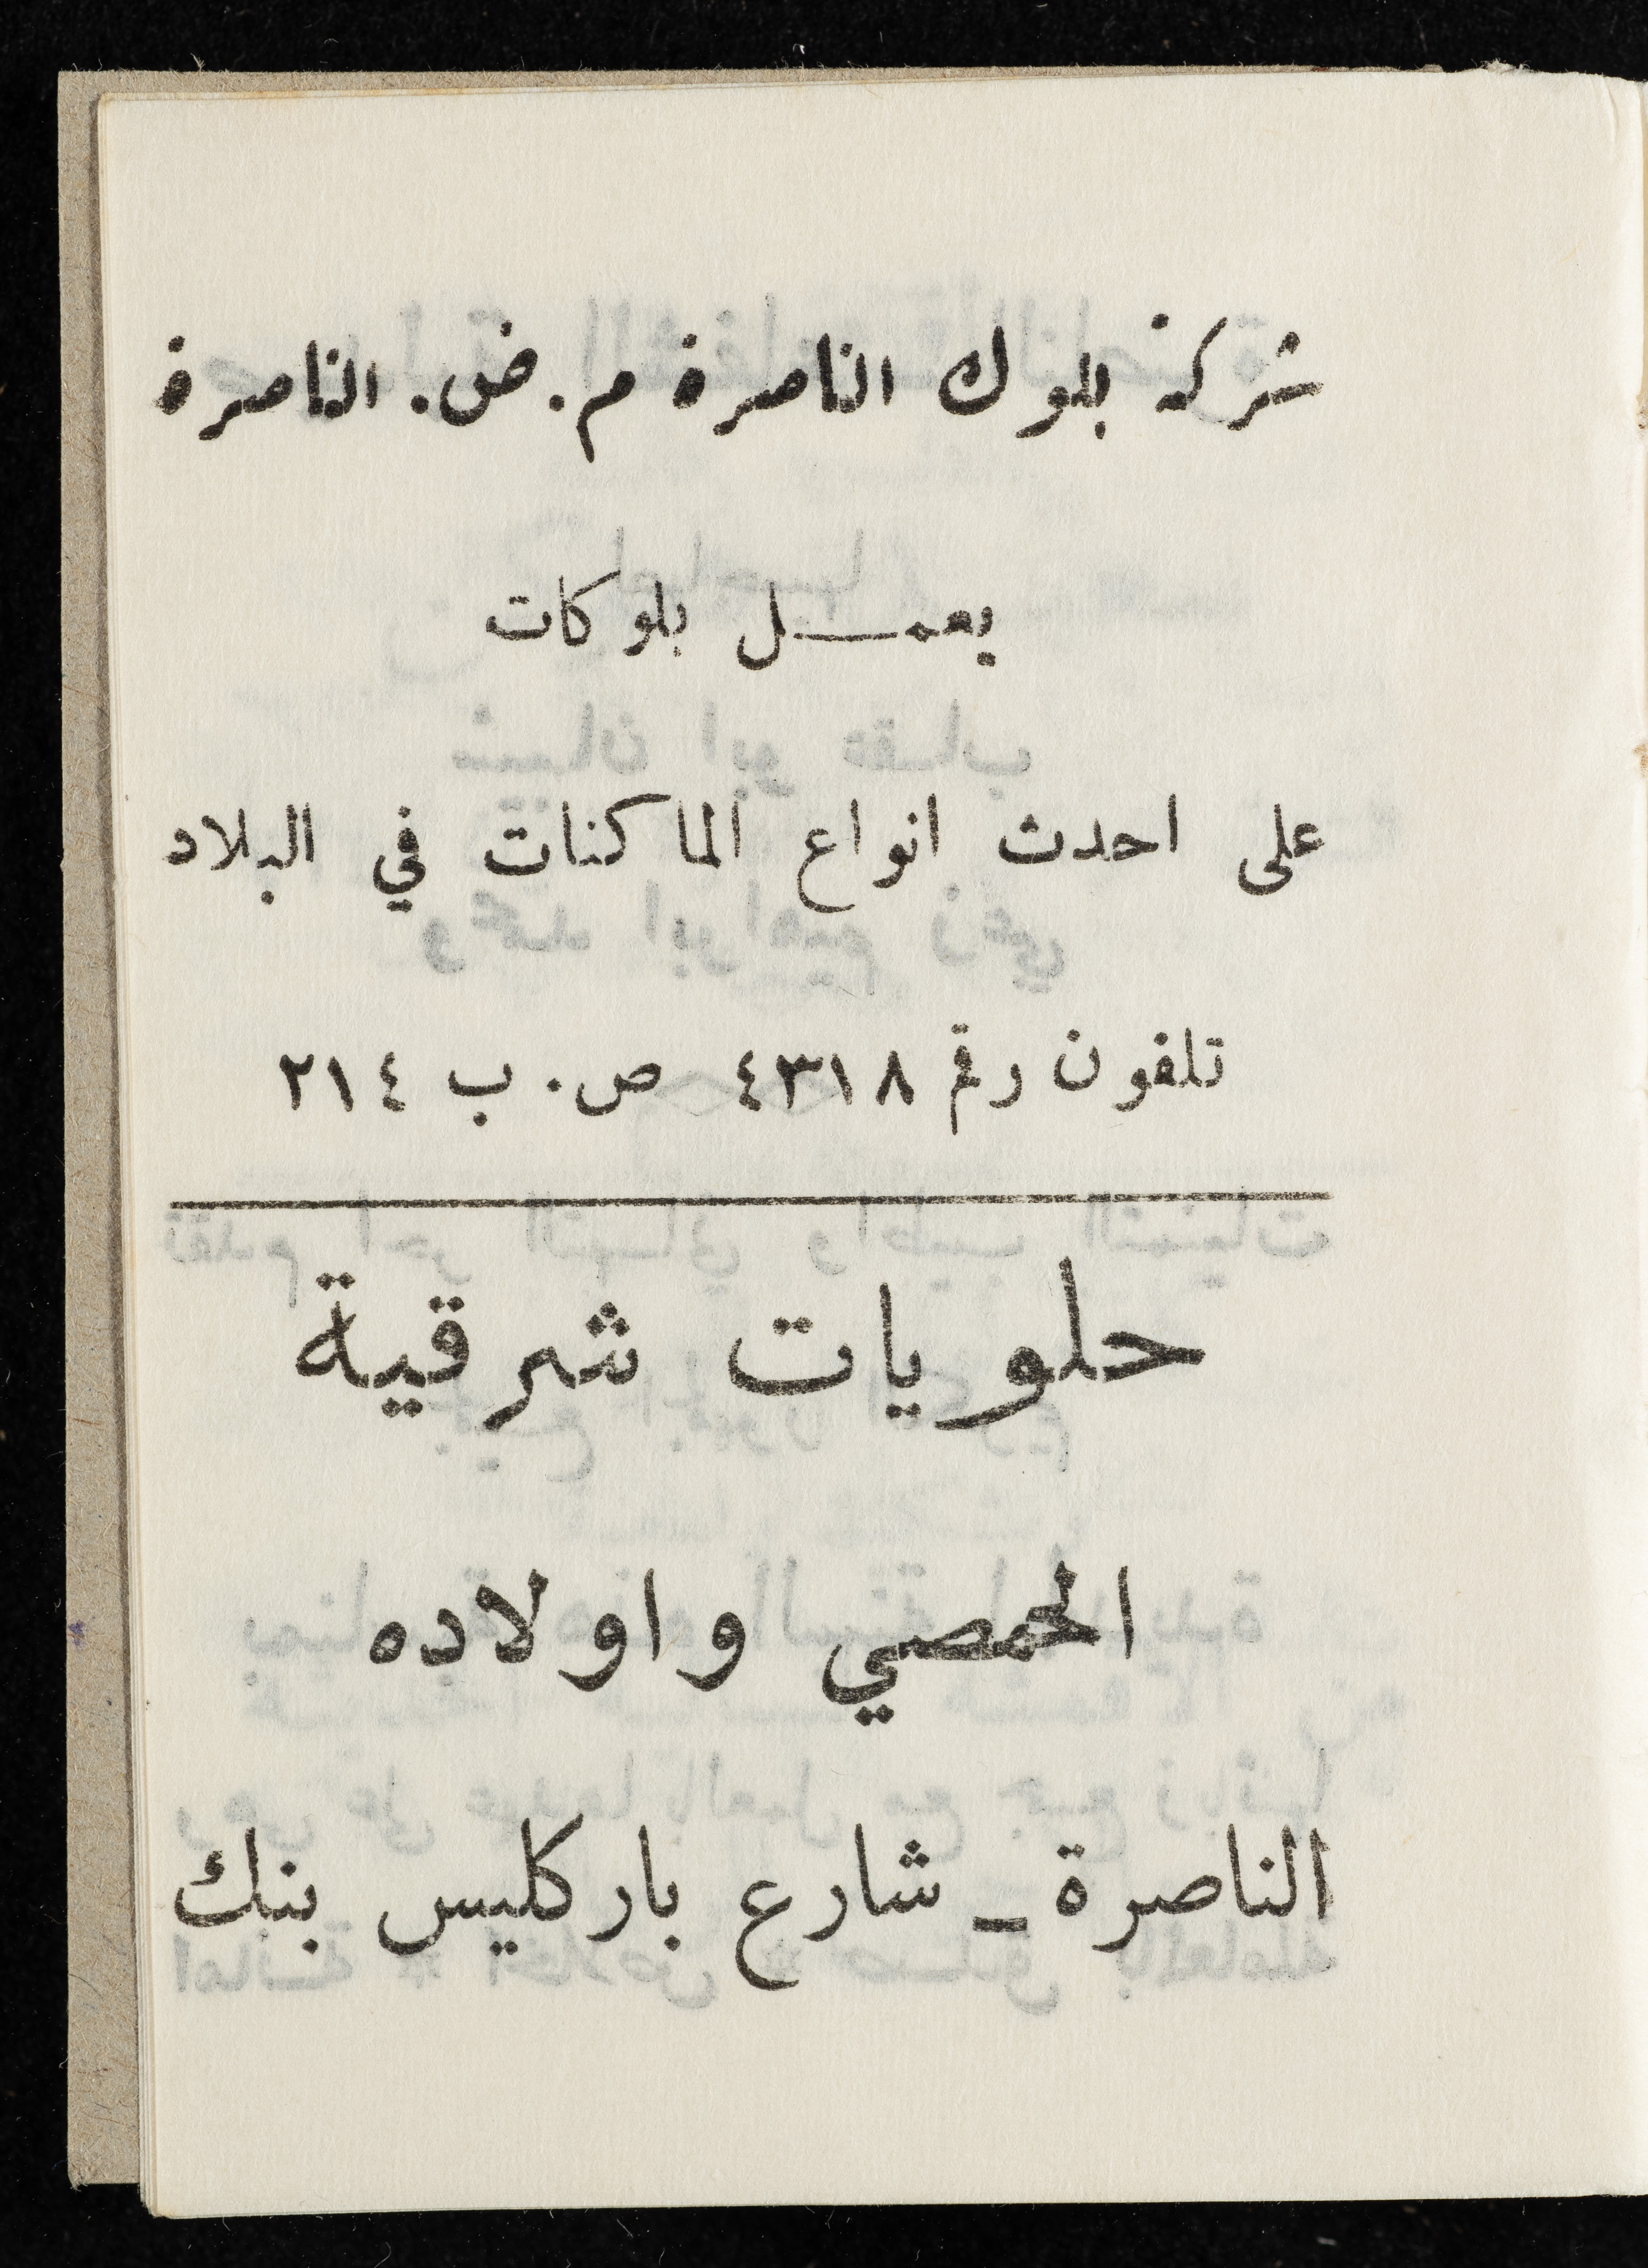 شركة بلوك الناصرة م. ض. الناصرة
يعمـــل بلوكات
على احدث انواع الماكنات في البلاد
تلفون رقم ٤٣١٨ ص. ب ٢١٤
حلويات شرقية
الحمصي واولاده
الناصرة - شارع باركليس بنك